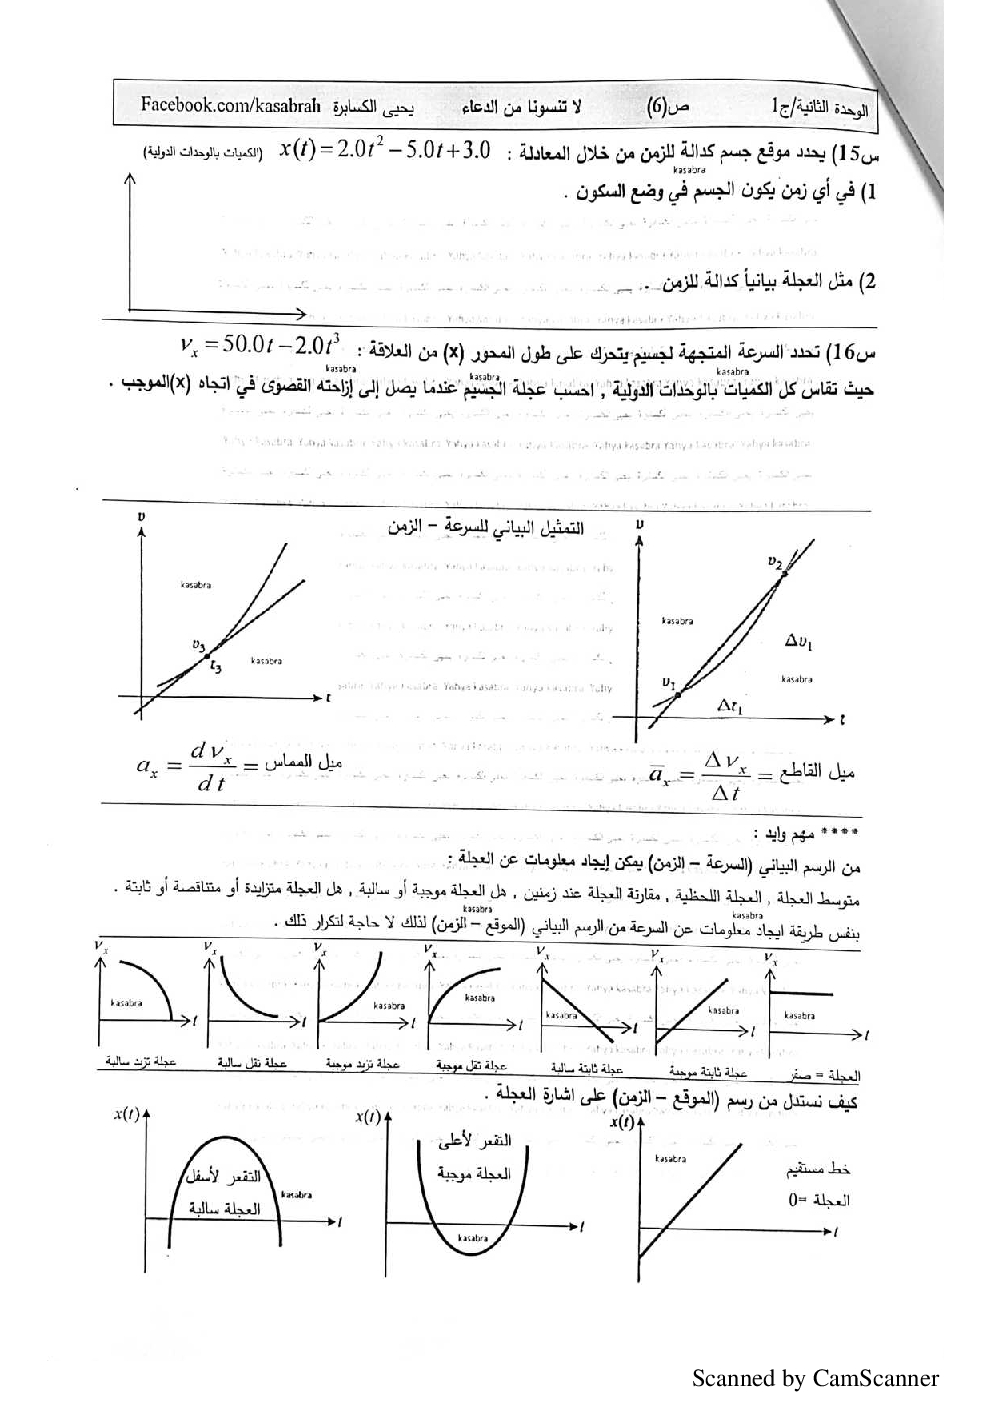 الوحدة الثانية/ج1 ص(6) لا تنسونا من الدعاء يحيى الكسابرة Facebook.com/kasabrah
س15) يحدد موقع جسم كدالة للزمن من خلال المعادلة : x(t) = 2.0t² − 5.0t + 3.0 (الكميات بالوحدات الدولية)
kasabra
1) في أي زمن يكون الجسم في وضع السكون .
2) مثل العجلة بيانياً كدالة للزمن .
س16) تحدد السرعة المتجهة لجسيم يتحرك على طول المحور (x) من العلاقة : vₓ = 50.0t − 2.0t³
kasabra kasabra kasabra
حيث تقاس كل الكميات بالوحدات الدولية , احسب عجلة الجسيم عندما يصل إلى إزاحته القصوى في اتجاه (x)الموجب .
التمثيل البياني للسرعة – الزمن
υ υ₂ kasabra Δυ₁ kasabra υ₁ Δt₁ t
υ kasabra υ₃ t₃ kasabra t
ميل القاطع = Δvₓ/Δt = āₓ
ميل المماس = dvₓ/dt = aₓ
**** مهم وايد :
من الرسم البياني (السرعة – الزمن) يمكن إيجاد معلومات عن العجلة :
متوسط العجلة , العجلة اللحظية , مقارنة العجلة عند زمنين , هل العجلة موجبة أو سالبة , هل العجلة متزايدة أو متناقصة أو ثابتة .
kasabra kasabra
بنفس طريقة ايجاد معلومات عن السرعة من الرسم البياني (الموقع – الزمن) لذلك لا حاجة لتكرار ذلك .
vₓ vₓ vₓ vₓ vₓ vₓ vₓ
kasabra kasabra kasabra kasabra kasabra kasabra
t t t t t t t
العجلة = صفر عجلة ثابتة موجبة عجلة ثابتة سالبة عجلة تقل موجبة عجلة تزيد موجبة عجلة تقل سالبة عجلة تزيد سالبة
كيف نستدل من رسم (الموقع – الزمن) على اشارة العجلة .
x(t) x(t) x(t)
خط مستقيم
العجلة =0
kasabra t
التقعر لأعلى
العجلة موجبة
kasabra t
التقعر لأسفل
العجلة سالبة
kasabra t
Scanned by CamScanner